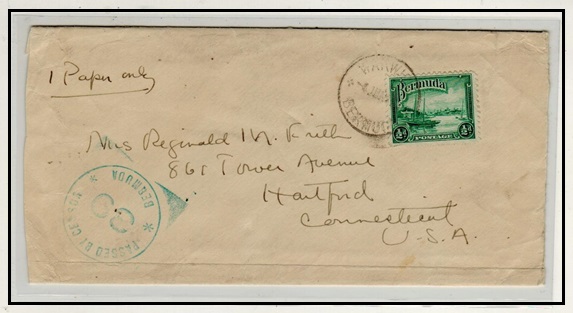 1 Paper only
Bermuda
½d
½d
POSTAGE
BERMUDA
Mrs Reginald M. Frith
861 Tower Avenue
Hartford
Connecticut
U.S.A.
PASSED BY CENSOR
BERMUDA